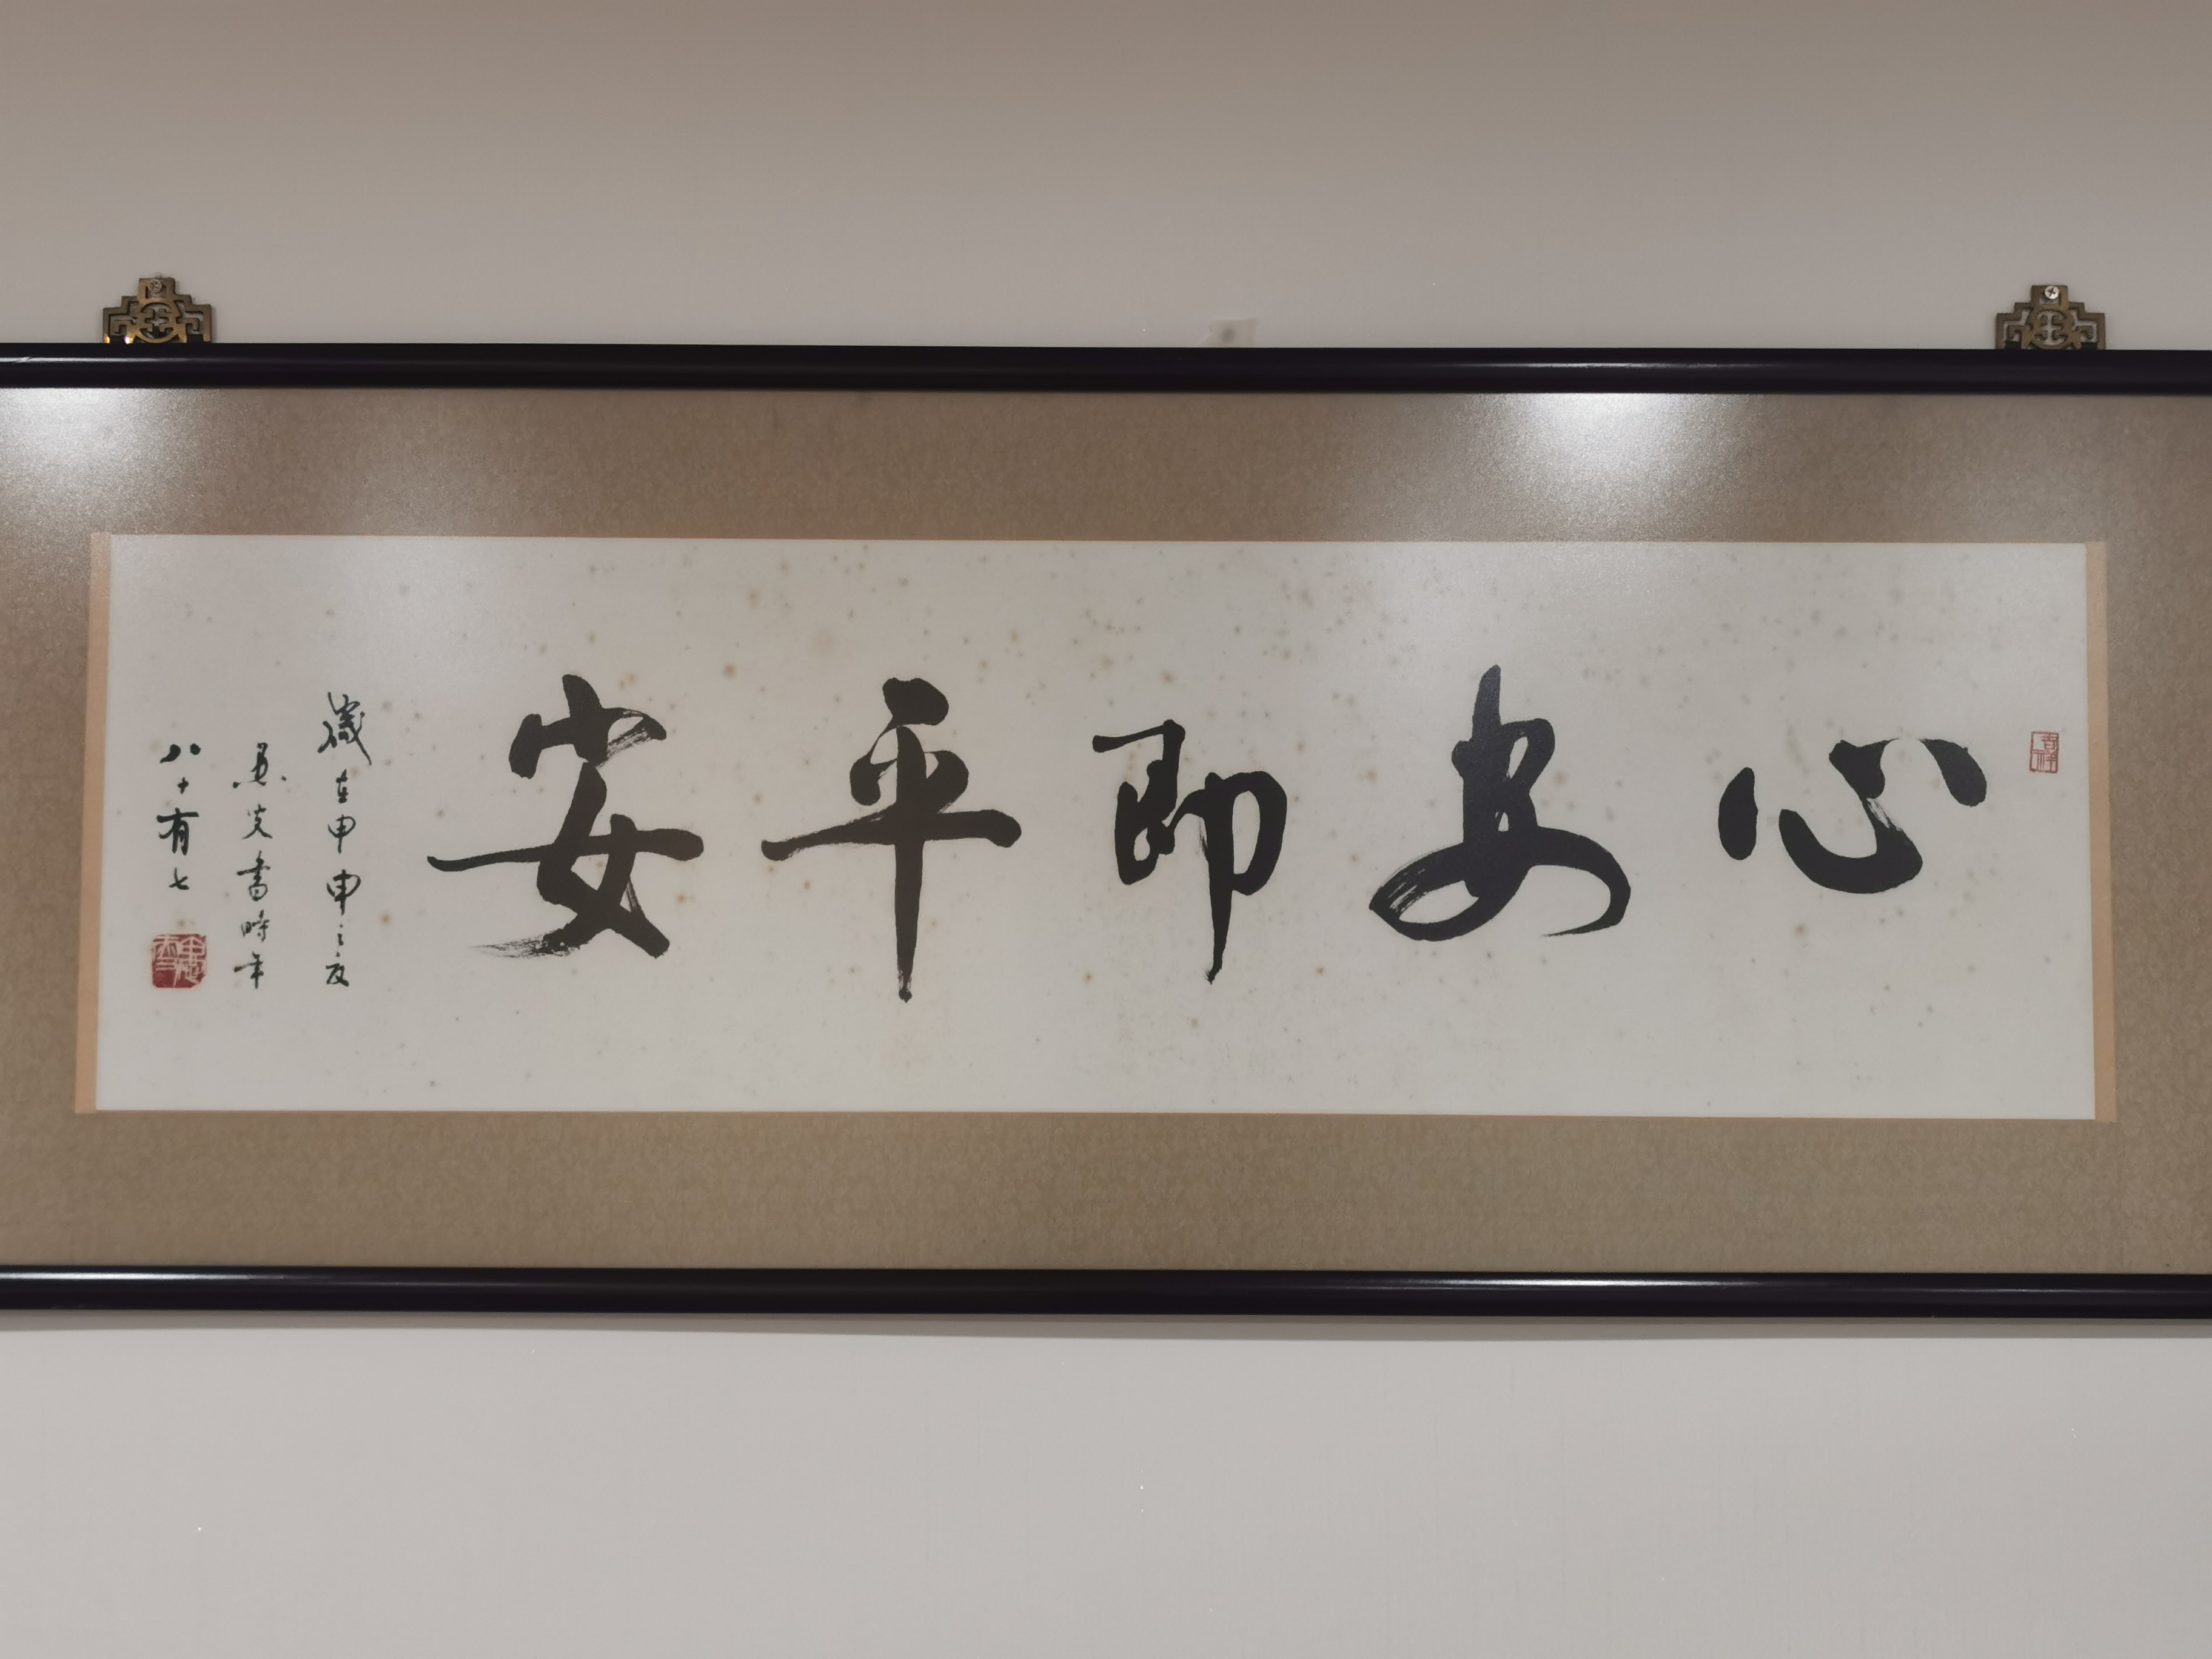 心安即平安
歲在甲申之夏
愚叟書時年
八十有七